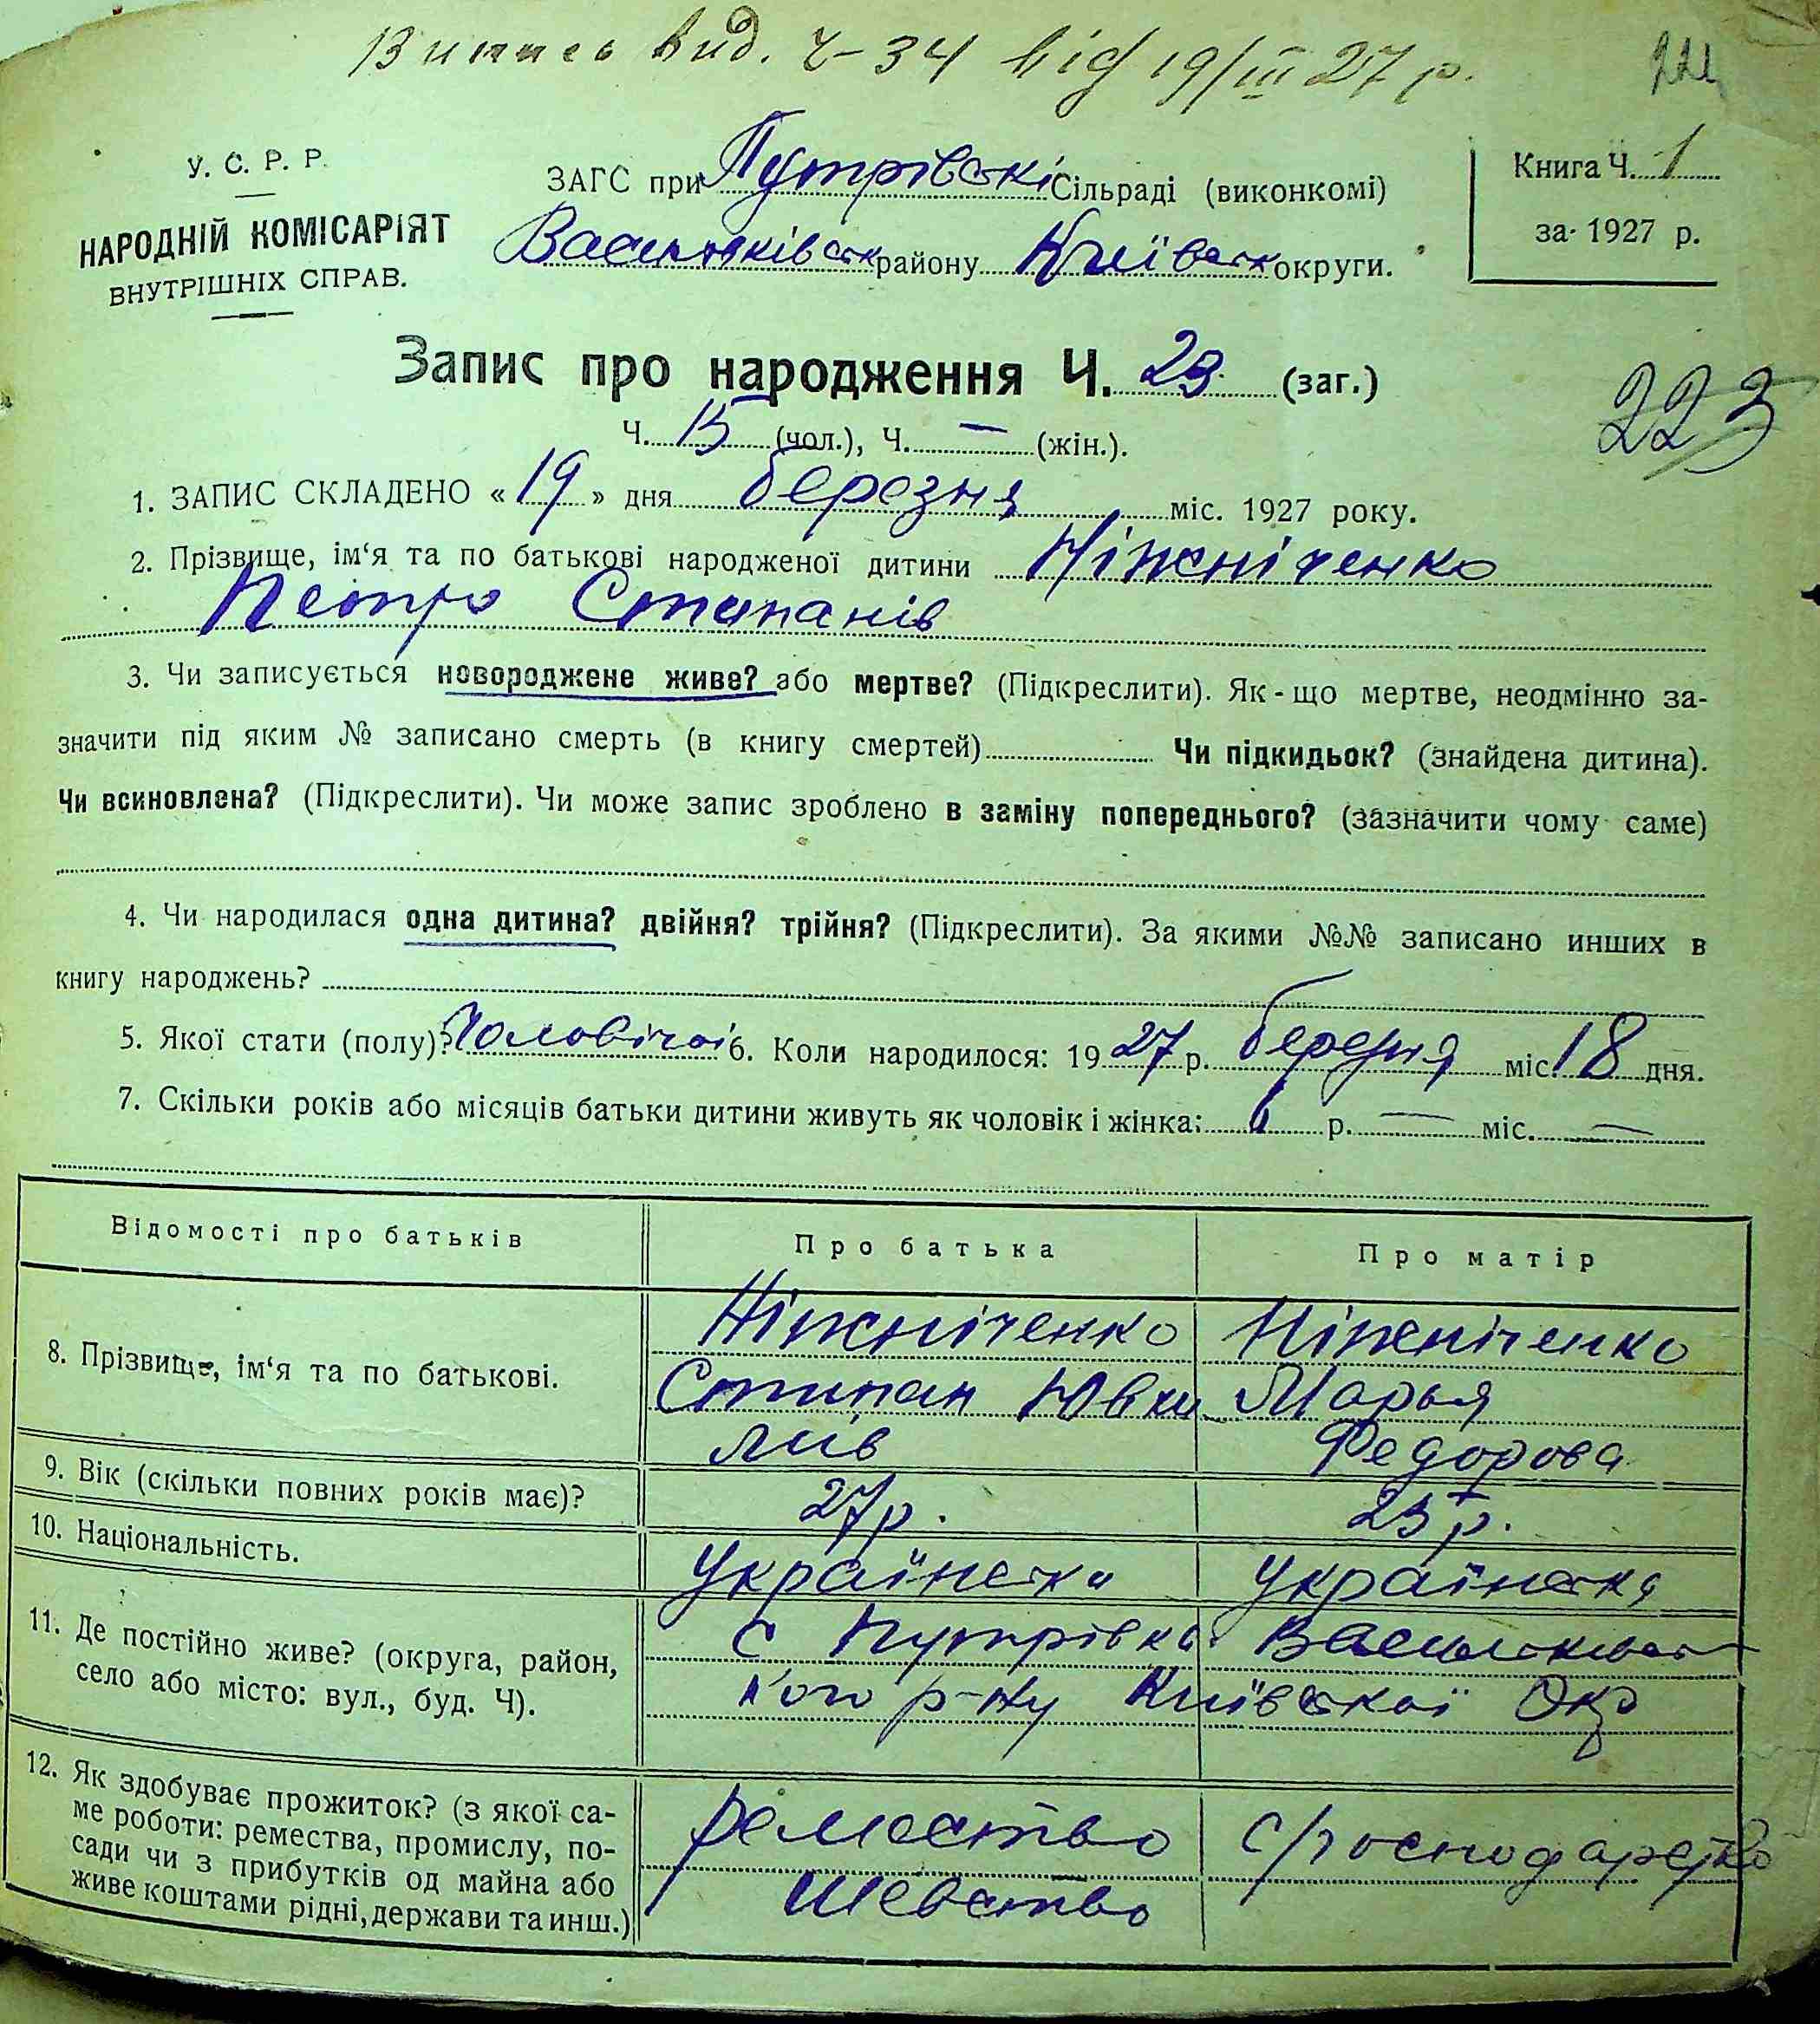 Випись вид. Ч-34 від 19/III 27 р.
У. С. Р. Р.
НАРОДНІЙ КОМІСАРІЯТ
ВНУТРІШНІХ СПРАВ.
ЗАГС при Путрівскі Сільраді (виконкомі)
Васильківськ району Київськ округи.
Книга Ч. 1
за 1927 р.
Запис про народження Ч. 23 (заг.)
223
Ч. 15 (чол.), Ч. — (жін.).
1. ЗАПИС СКЛАДЕНО «19» дня березня міс. 1927 року.
2. Прізвище, ім‘я та по батькові народженої дитини Ніжніченко
Петро Степанів
3. Чи записується новороджене живе? або мертве? (Підкреслити). Як-що мертве, неодмінно за-
значити під яким № записано смерть (в книгу смертей) Чи підкидьок? (знайдена дитина).
Чи всиновлена? (Підкреслити). Чи може запис зроблено в заміну попереднього? (зазначити чому саме)
4. Чи народилася одна дитина? двійня? трійня? (Підкреслити). За якими №№ записано инших в
книгу народжень?
5. Якої стати (полу)? Чоловічої 6. Коли народилося: 1927 р. березня міс. 18 дня.
7. Скільки років або місяців батьки дитини живуть як чоловік і жінка: 6 р. — міс. —
Відомості про батьків
Про батька
Про матір
8. Прізвище, ім‘я та по батькові.
Ніжніченко
СтепанЮвхи
мів
Ніжніченко
Марья
Федорова
9. Вік (скільки повних років має)?
27 р.
23 р.
10. Національність.
Українська
Українська
11. Де постійно живе? (округа, район,
село або місто: вул., буд. Ч).
с Путрівка Васильківсь
кого р-ну Київської Окр
12. Як здобуває прожиток? (з якої са-
ме роботи: ремества, промислу, по-
сади чи з прибутків од майна або
живе коштами рідні, держави та инш.)
ремество
шевство
с/господарство